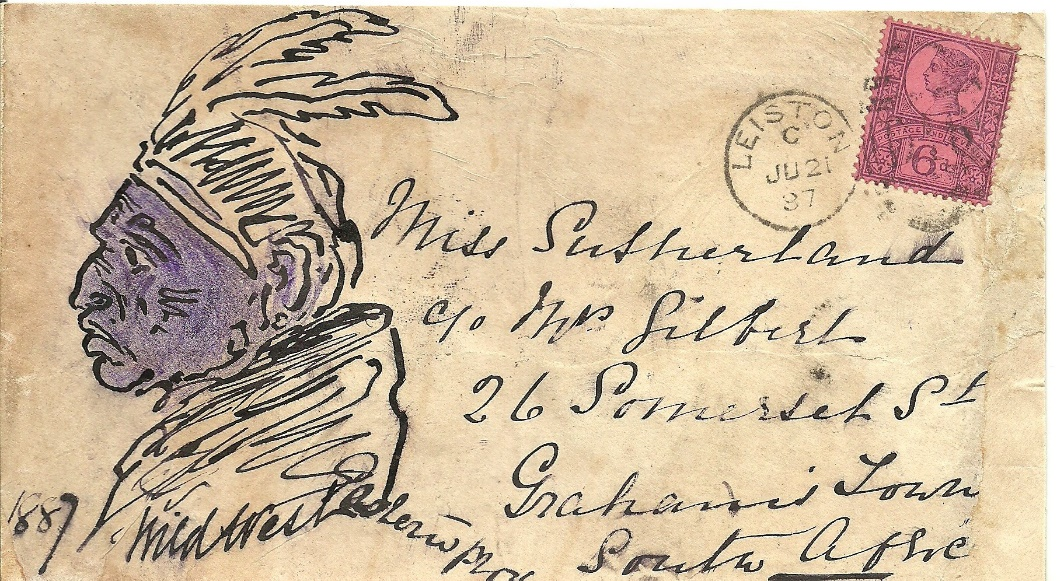 LEISTON
C
JU 21
87
POSTAGE
6d
Miss Sutherland
c/o Mrs Gilbert
26 Somerset St
Grahams Town
South Afric
1887
Wild West